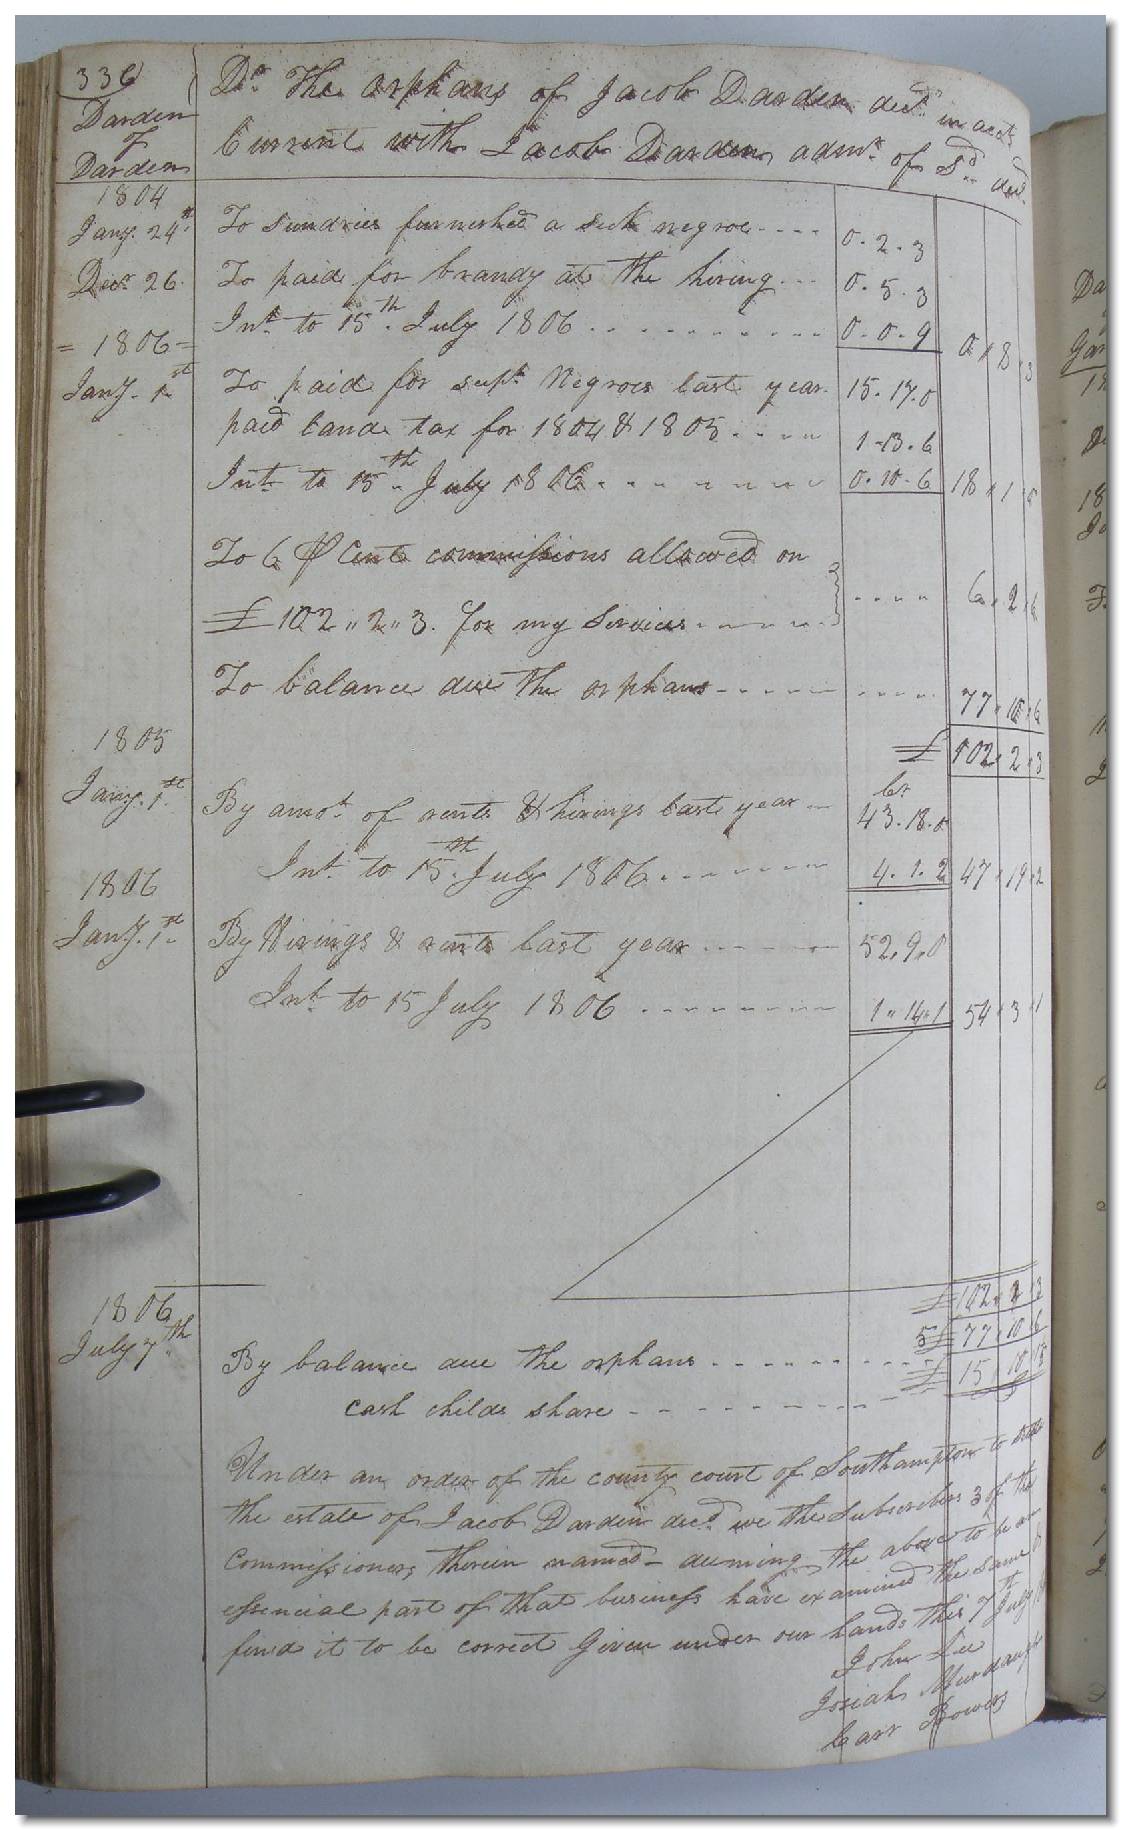 336
Darden
of
Darden
Dr. The orphans of Jacob Darden decd. in acct.
Current with Jacob Darden, admr. of Sd. decd.
1804
Jany. 24th. To Sundries furnished a sick negroe .... 0.2.3
Decr. 26. To paid for brandy at the hiring ... 0.5.3
Int. to 15th. July 1806 .......... 0.0.9 0,,8,,3
= 1806 =
Jany. 1st To paid for supt. Negroes last year. 15.17.0
paid land tax for 1804 & 1805 .... 1-13.6
Int. to 15th. July 1806 ........ 0.10.6 18,,1,,
To 6 ⅌ Cent commissions allowed on
£ 102,,2,,3. for my Services ....... 6,,2,,6
To balance due the orphans ........ 77,,10,,6
£ 102,,2,,3
1805 Cr.
Jany. 1st. By amot. of rents & hirings last year .. 43.18.0
Int. to 15th. July 1806 ....... 4.1.2 47,,19,,2
1806
Jany. 1st. By Hirings & rents last year ...... 52,9,0
Int. to 15 July 1806 ......... 1,,14,,1 54,,3,,1
£ 102,,2,,3
1806
July 7th. By balance due the orphans .......... 5 £ 77,,10,,6
cash childs share .......... £ 15,,10,,
Under an order of the county court of Southampton to
the estate of Jacob Darden decd. we the Subscribers 3 of the
commissioners therein named - deeming the above to be an
essencial part of that business have examined the same &
find it to be correct Given under our hands this 7th July
John Lee
Josiah Murdaugh
Carr Bowers